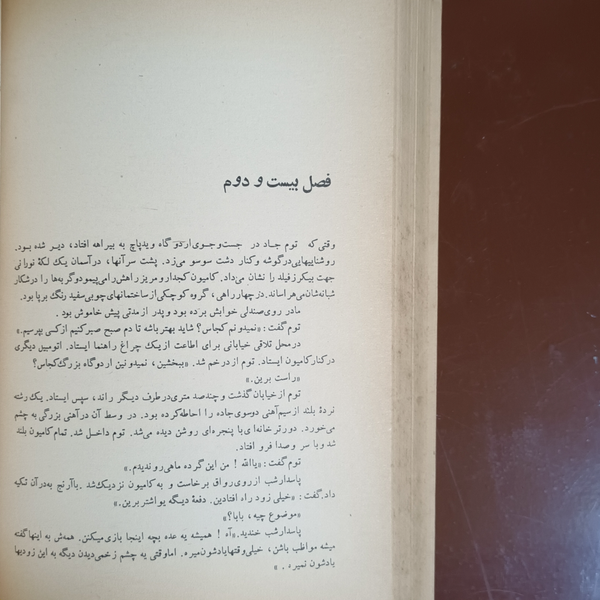 فصل بیست و دوم
وقتی که توم جاد در جست‌وجوی اردوگاه ویدپاچ به بیراهه افتاد، دیر شده بود.
روشنایهایی درگوشه و کنار دشت سوسو می‌زد. پشت سرآنها، درآسمان یک لکهٔ نورانی
جهت بیکرزفیلد را نشان می‌داد. کامیون کجدار و مریز راهش را می‌پیمود و گربه‌ها را درشکار
شبانه‌شان می‌هراساند. درچهارراهی، گروه کوچکی از ساختمانهای چوبی سفید رنگ برپا بود.
مادر روی صندلی خوابش برده بود و پدر از مدتی پیش خاموش بود.
توم گفت: «نمیدونم کجاس؟ شاید بهتر باشه تا دم صبح صبر کنیم از کسی بپرسیم.»
درمحل تلاقی خیابانی برای اطاعت از یک چراغ راهنما ایستاد. اتومبیل دیگری
درکنار کامیون ایستاد. توم از در خم شد. «ببخشین، نمیدونین اردوگاه بزرگ کجاس؟
«راست برین.»
توم از خیابان گذشت و چند صد متری درطرف دیگر راند، سپس ایستاد. یک رشته
نردهٔ بلند از سیم آهنی دوسوی جاده را احاطه کرده بود. در وسط آن درآهنی بزرگی به چشم
می‌خورد. دورتر خانه‌ای با پنجره‌ای روشن دیده می‌شد. توم داخل شد. تمام کامیون بلند
شد و با سر و صدا فرو افتاد.
توم گفت: «یاالله ! من این گرده ماهی رو ندیدم.»
پاسدار شب از روی رواق برخاست و به کامیون نزدیک شد. با آرنج به در آن تکیه
داد. گفت: «خیلی زود راه افتادین. دفعهٔ دیگه یواشتر برین.»
«موضوع چیه، بابا؟»
پاسدار شب خندید. «آه ! همیشه یه عده بچه اینجا بازی میکنن. همه‌ش به اینها گفته
میشه مواظب باشن، خیلی وقتها یادشون میره. اما وقتی یه چشم زخمی دیدن دیگه به این زودیها
یادشون نمیره . »